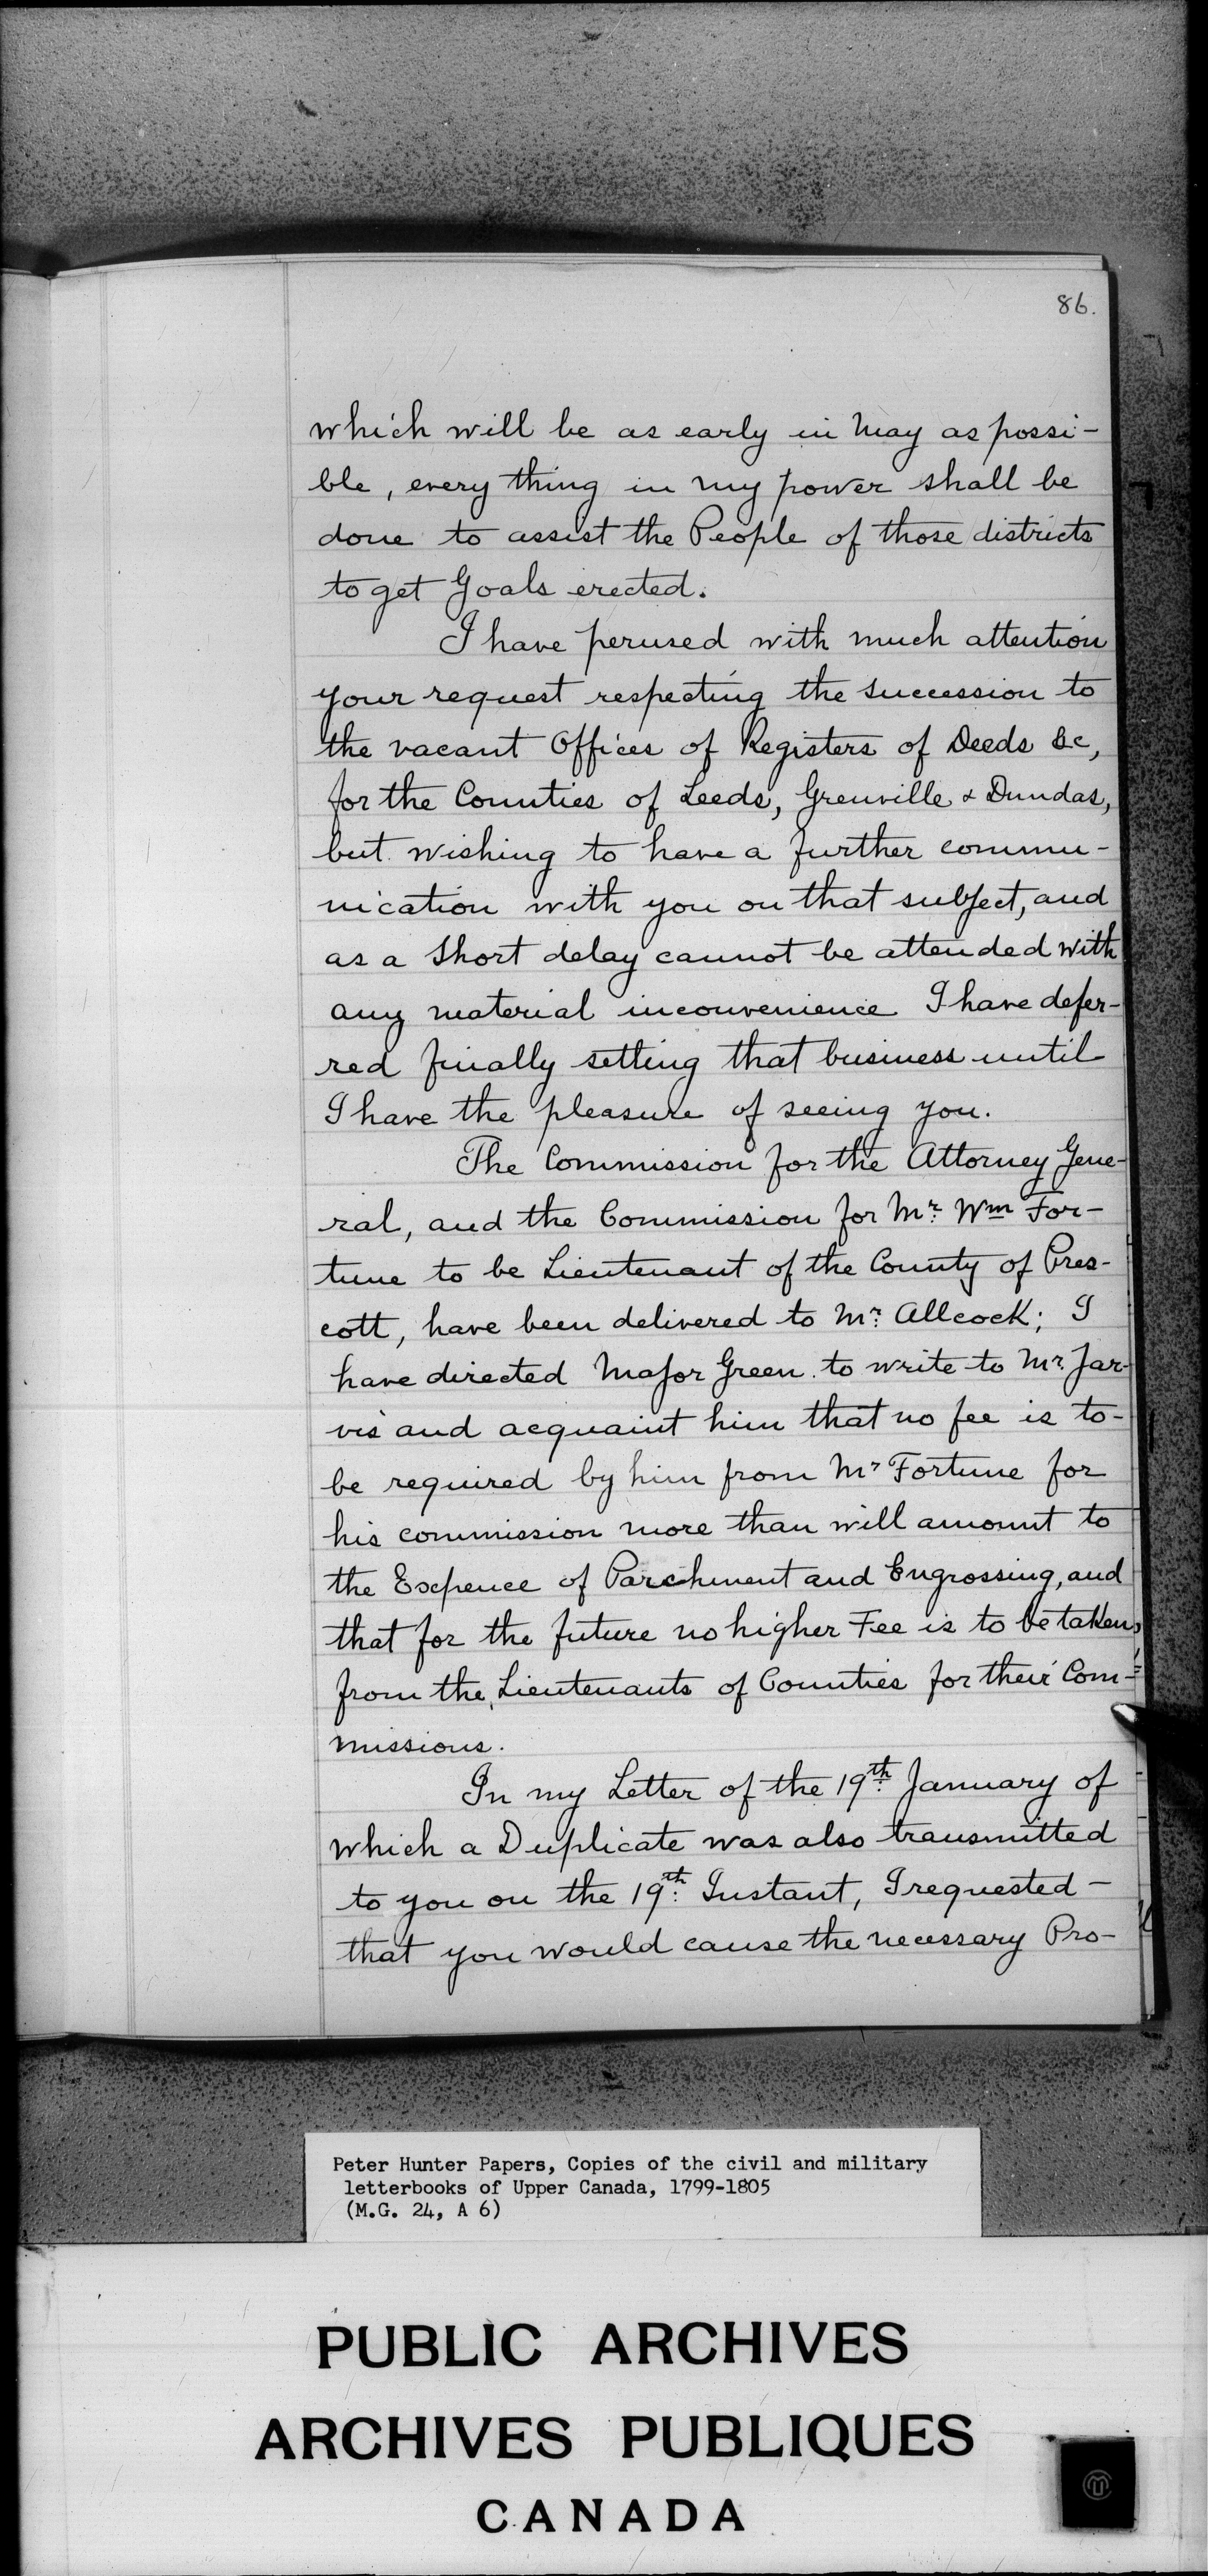 86.
which will be as early in May as possi-
ble, every thing in my power shall be
done to assist the People of those districts
to get Goals erected.
I have perused with much attention
your request respecting the succession to
the vacant Offices of Registers of Deeds &c,
for the Counties of Leeds, Grenville & Dundas,
but wishing to have a further commu-
nication with you on that subject, and
as a short delay cannot be attended with
any material inconvenience I have defer-
red finally setting that business until
I have the pleasure of seeing you.
The Commission for the Attorney Gene-
ral, and the Commission for Mr. Wm For-
tune to be Lieutenant of the County of Pres-
cott, have been delivered to Mr. Allcock; I
have directed Major Green to write to Mr. Jar-
vis and acquaint him that no fee is to-
be required by him from Mr Fortune for
his commission more than will amount to
the Expence of Parchment and Engrossing, and
that for the future no higher Fee is to be taken,
from the Lieutenants of Counties for their Com-
missions.
In my Letter of the 19th. January of
which a Duplicate was also transmitted
to you on the 19th. Instant, I requested-
that you would cause the necessary Pro-
Peter Hunter Papers, Copies of the civil and military
letterbooks of Upper Canada, 1799-1805
(M.G. 24, A 6)
PUBLIC ARCHIVES
ARCHIVES PUBLIQUES
CANADA